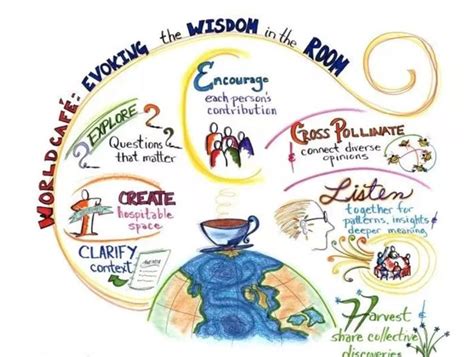 WORLD CAFÉ: EVOKING the WISDOM in the ROOM
CLARIFY
context
CREATE
hospitable
space
EXPLORE
Questions
that matter
Encourage
each person's
contribution
CROSS POLLINATE
& connect diverse
opinions
Listen
together for
patterns, insights &
deeper meaning
Harvest &
share collective
discoveries